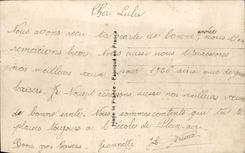 Cher Lulu
Nous avons reçu la carte de bonne année nous t'en
remercions bien. Nous aussi nous t'adressons
nos meilleurs vœux pour 1926 ainsi que de
baisers. Je aussi nos meilleurs vœux
de bonne santé. Nous sommes contents que tu te
plaises toujours à l'école de
Bons baisers Jeannette
Made in France - Fabriqué en France